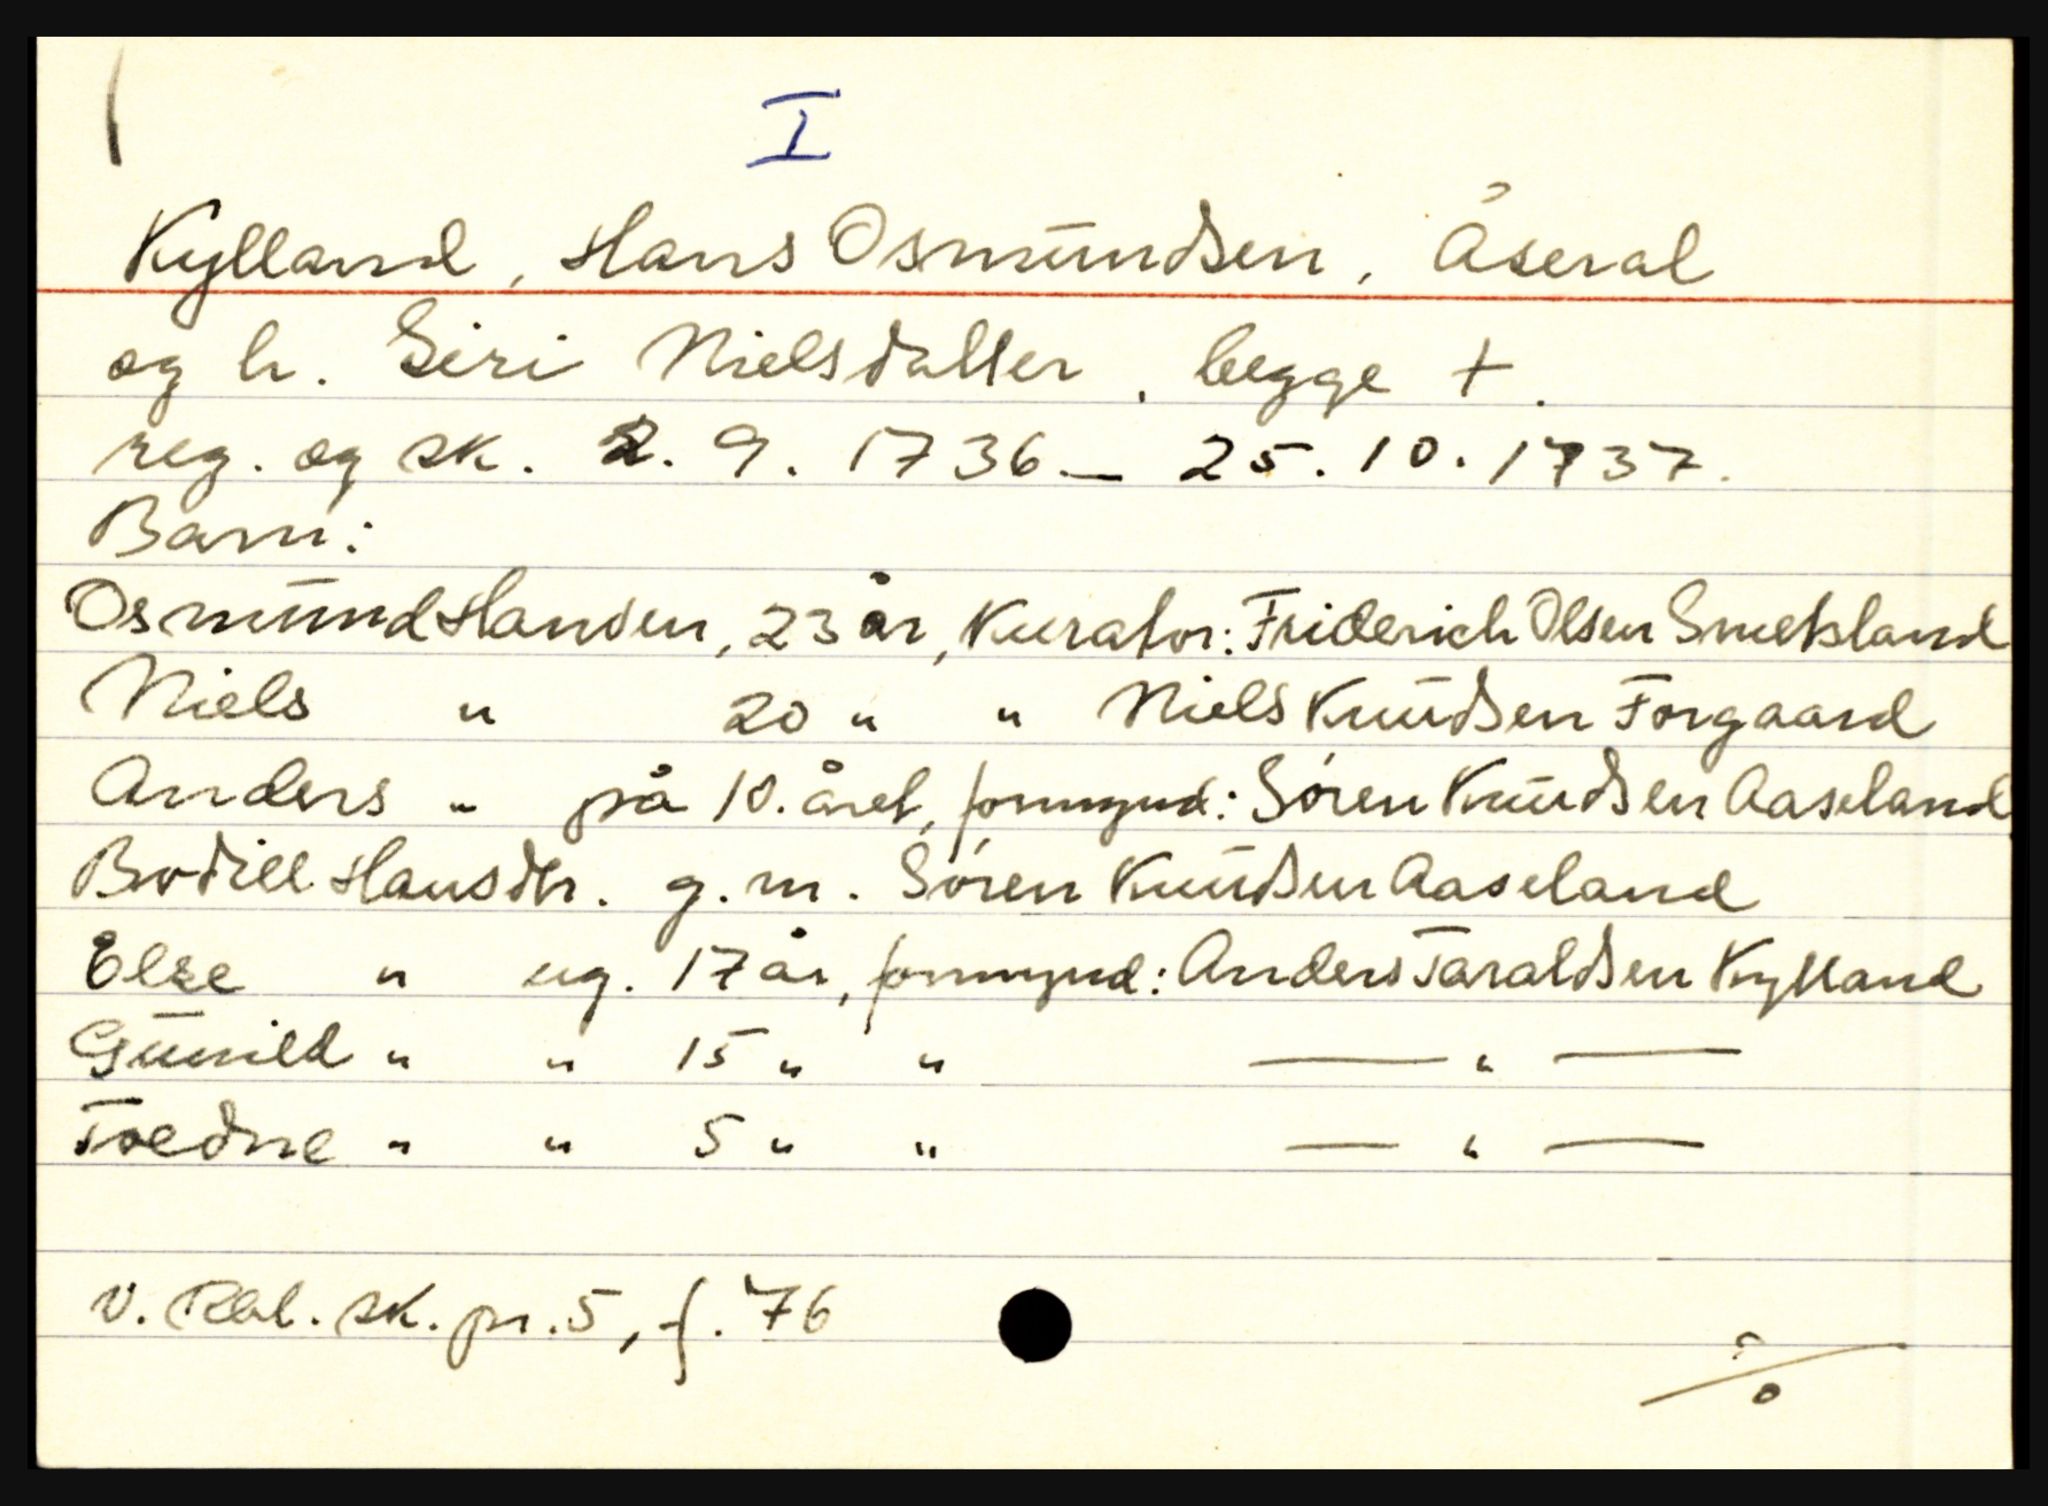 I
Kylland, Hans Osmundsen, Åseral
og h. Siri Nielsdatter, begge +.
reg. og sk. 2. 9. 1736 – 25. 10. 1737.
Barn:
Osmund Hansen, 23 år, Kurator: Friderich Olsen Smeland
Niels " 20 " " Niels Knudsen Forgaard
Anders " på 10. året, formynd: Sören Knudsen Aaseland
Bodill Hansdtr. g. m. Sören Knudsen Aaseland
Else " ug. 17 år, formynd: Anders Taraldsen Kylland
Gunild " " 15 " " — " —
Toedne " " 5 " " — " —
v. Rbl. sk. pr. 5, f. 76